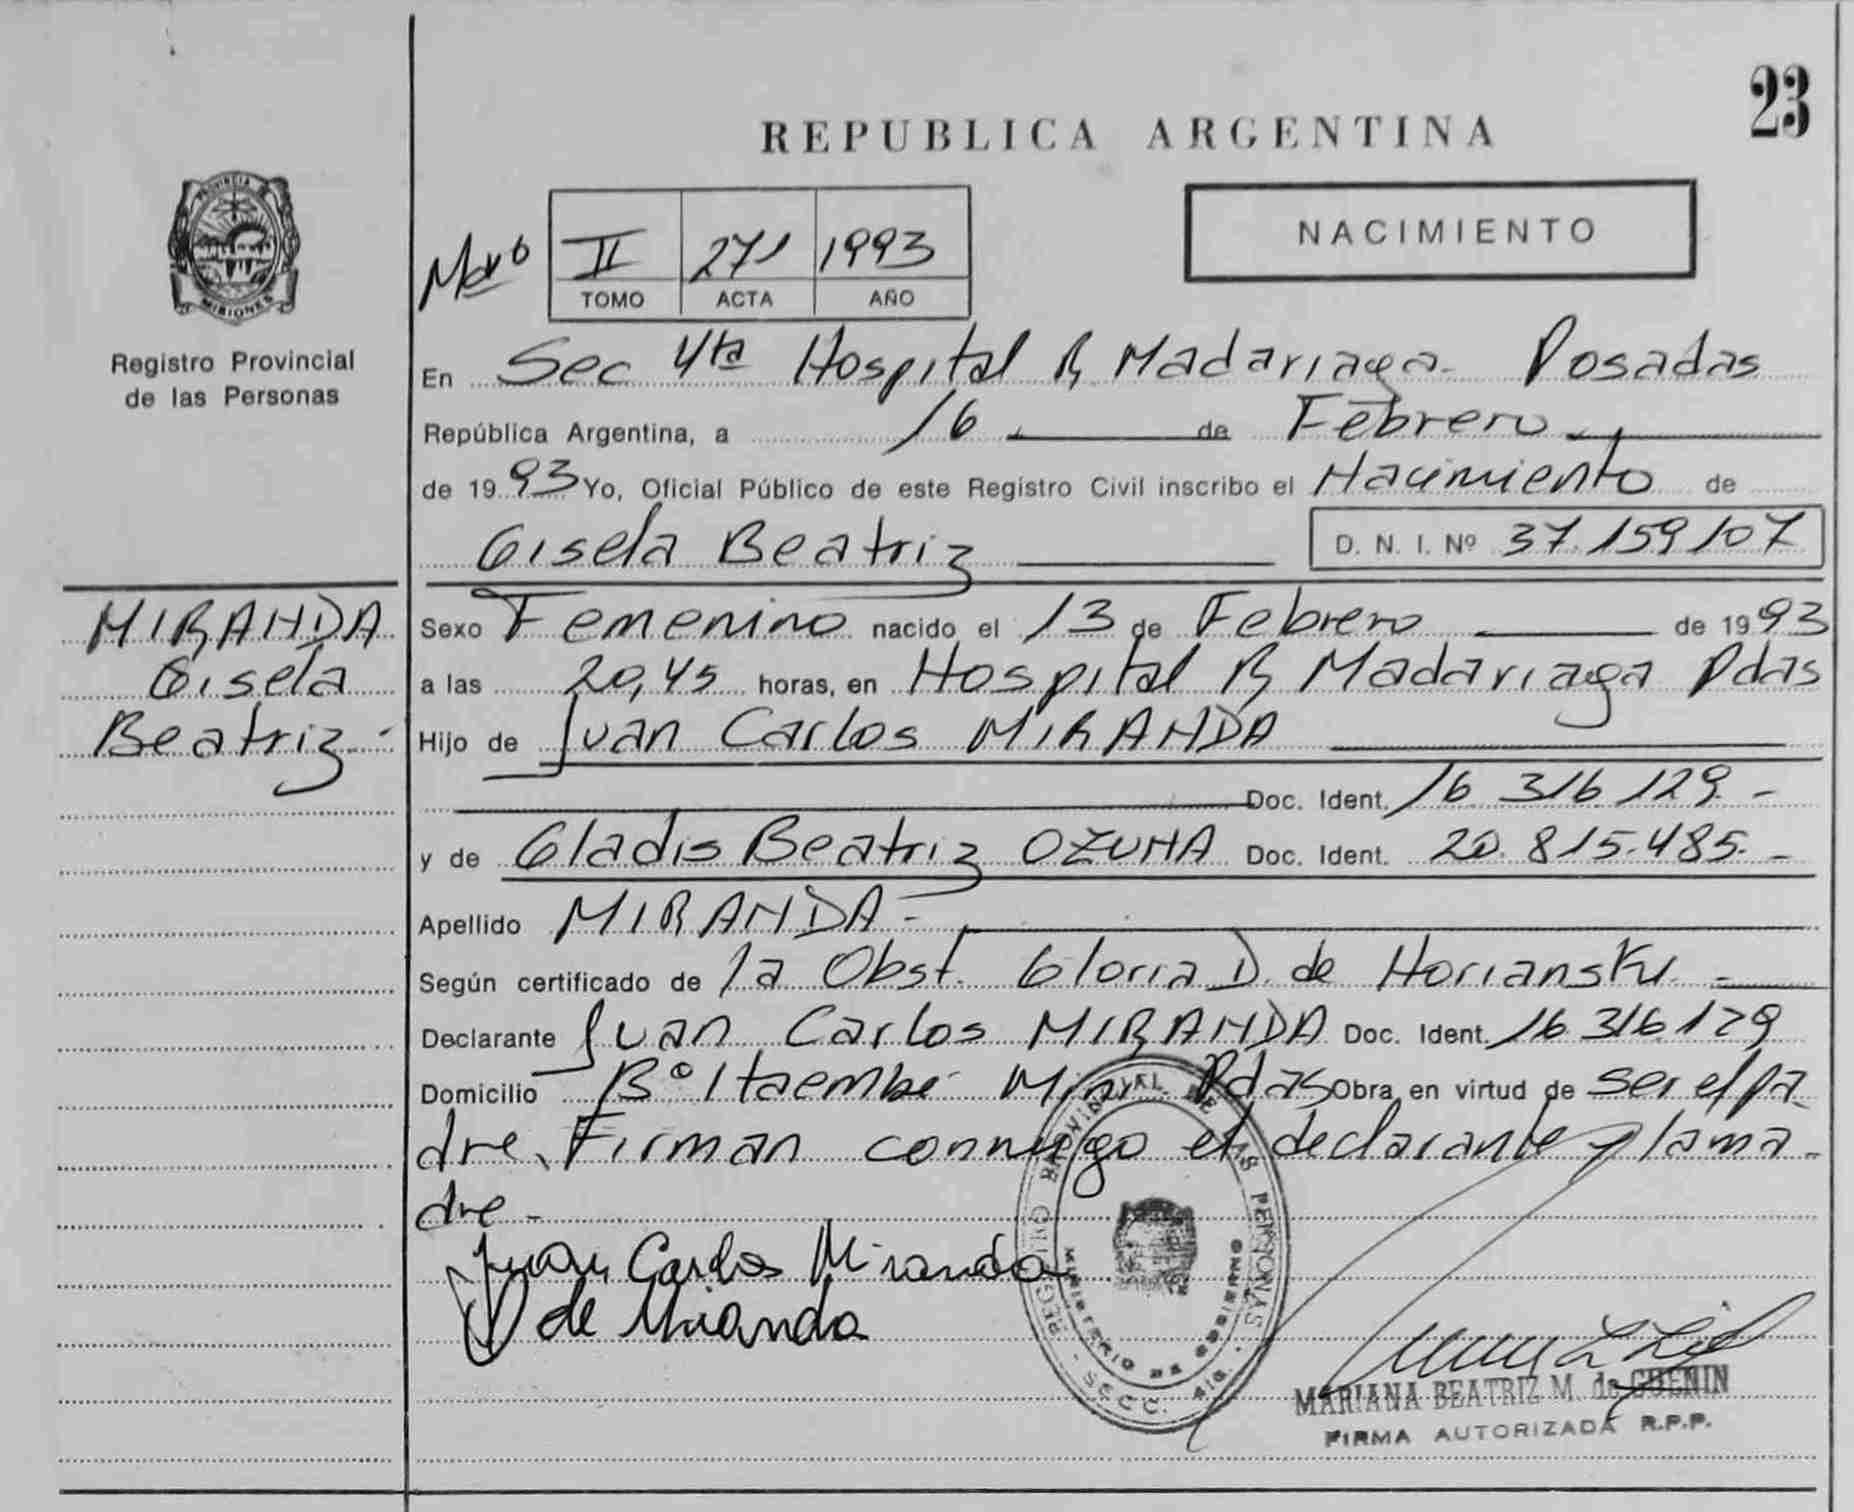 23
REPUBLICA ARGENTINA
NACIMIENTO
II 271 1993
TOMO ACTA AÑO
PROVINCIA DE
MISIONES
Registro Provincial
de las Personas
En Sec 4ta Hospital R Madariaga - Posadas
República Argentina, a 16 de Febrero
de 1993 Yo, Oficial Público de este Registro Civil inscribo el Nacimiento de
Gisela Beatriz D. N. I. Nº 37.159107
MIRANDA
Gisela
Beatriz -
Sexo Femenino nacido el 13 de Febrero de 1993
a las 20,45 horas, en Hospital R Madariaga Pdas
Hijo de Juan Carlos MIRANDA
Doc. Ident. 16 316 129 -
y de Gladis Beatriz OZUNA Doc. Ident. 20.815.485.-
Apellido MIRANDA -
Según certificado de la Obst. Gloria D. de
Declarante Juan Carlos MIRANDA Doc. Ident. 16 316 129
Domicilio Bº Itaembé Miní Pdas Obra en virtud de ser el pa
dre. Firman conmigo el declarante y la ma-
dre -
Juan Carlos Miranda
de Miranda
REGISTRO PROVINCIAL DE LAS PERSONAS
MINISTERIO DE GOBIERNO
SECC.
MARIANA BEATRIZ M. de GUENIN
FIRMA AUTORIZADA R.P.P.